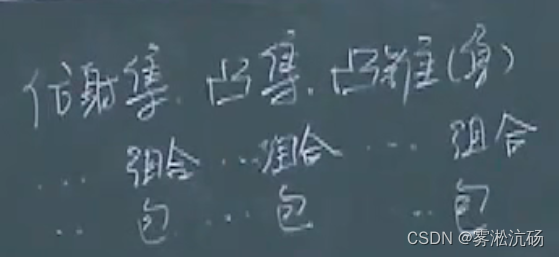 仿射集. 凸集. 凸锥(集)
... 组合 ... 组合 ... 组合
.. 包 ... 包 .. 包
CSDN @雾凇沆砀